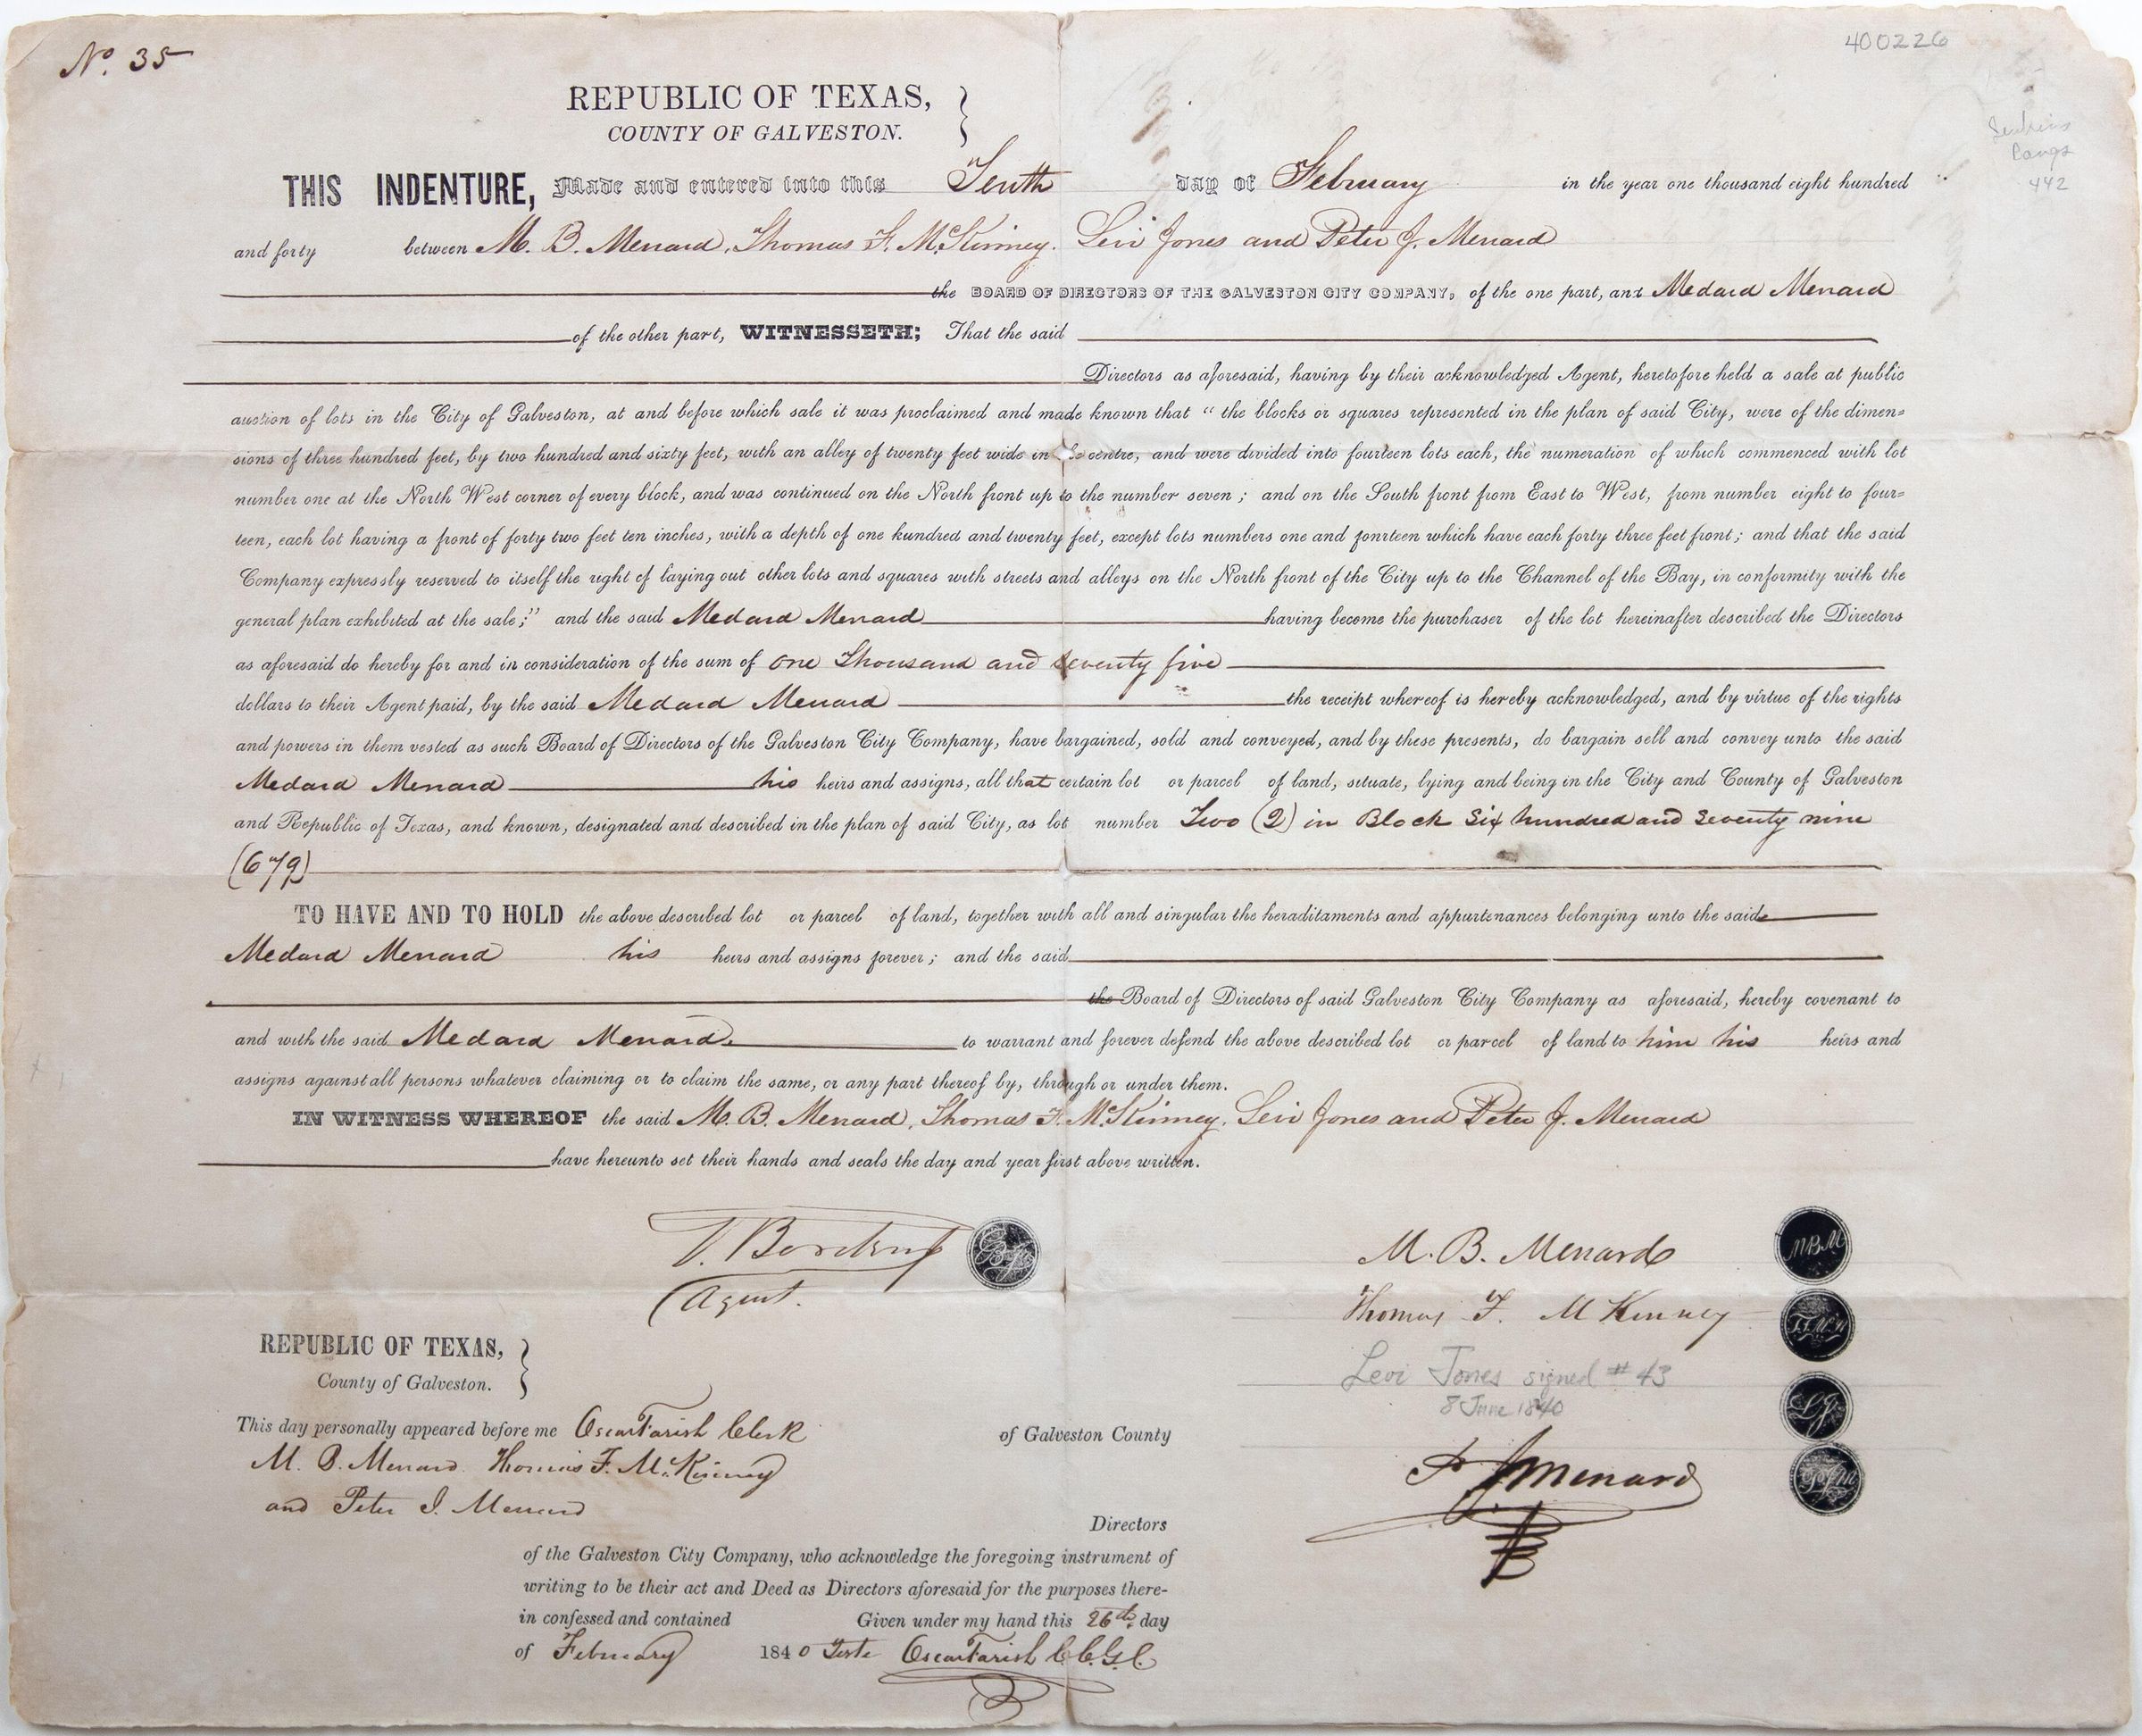 No. 35
400226
REPUBLIC OF TEXAS,
COUNTY OF GALVESTON.
Jenkins
442
THIS INDENTURE, Made and entered into this Tenth day of February in the year one thousand eight hundred
and forty between M. B. Menard, Thomas F. McKinney. Levi Jones and Peter J. Menard
the BOARD OF DIRECTORS OF THE GALVESTON CITY COMPANY, of the one part, and Medard Menard
of the other part, WITNESSETH; That the said
Directors as aforesaid, having by their acknowledged Agent, heretofore held a sale at public
auction of lots in the City of Galveston, at and before which sale it was proclaimed and made known that “ the blocks or squares represented in the plan of said City, were of the dimen=
sions of three hundred feet, by two hundred and sixty feet, with an alley of twenty feet wide in the centre, and were divided into fourteen lots each, the numeration of which commenced with lot
number one at the North West corner of every block, and was continued on the North front up to the number seven ; and on the South front from East to West, from number eight to four=
teen, each lot having a front of forty two feet ten inches, with a depth of one kundred and twenty feet, except lots numbers one and fonrteen which have each forty three feet front ; and that the said
Company expressly reserved to itself the right of laying out other lots and squares with streets and alleys on the North front of the City up to the Channel of the Bay, in conformity with the
general plan exhibited at the sale ;” and the said Medard Menard having become the purchaser of the lot hereinafter described the Directors
as aforesaid do hereby for and in consideration of the sum of One Thousand and seventy five
dollars to their Agent paid, by the said Medard Menard the receipt whereof is hereby acknowledged, and by virtue of the rights
and powers in them vested as such Board of Directors of the Galveston City Company, have bargained, sold and conveyed, and by these presents, do bargain sell and convey unto the said
Medard Menard his heirs and assigns, all that certain lot or parcel of land, situate, lying and being in the City and County of Galveston
and Republic of Texas, and known, designated and described in the plan of said City, as lot number Two (2) in Block Six hundred and Seventy nine
(679)
TO HAVE AND TO HOLD the above described lot or parcel of land, together with all and singular the heraditaments and appurtenances belonging unto the said
Medard Menard his heirs and assigns forever ; and the said
the Board of Directors of said Galveston City Company as aforesaid, hereby covenant to
and with the said Medard Menard. to warrant and forever defend the above described lot or parcel of land to him his heirs and
assigns against all persons whatever claiming or to claim the same, or any part thereof by, through or under them.
IN WITNESS WHEREOF the said M. B. Menard, Thomas F. McKinney. Levi Jones and Peter J. Menard
have hereunto set their hands and seals the day and year first above written.
Agent.
M. B. Menard
MBM
Thomas F. McKinney
TFMcK
Levi Jones signed # 43
8 June 1840
LJ
P J Menard
PJM
REPUBLIC OF TEXAS,
County of Galveston.
This day personally appeared before me Oscar Farish Clerk of Galveston County
M. B. Menard. Thomas F. McKinney
and Peter J. Menard
Directors
of the Galveston City Company, who acknowledge the foregoing instrument of
writing to be their act and Deed as Directors aforesaid for the purposes there-
in confessed and contained Given under my hand this 26th day
of February 1840 Teste Oscar Farish C.C.G.C.